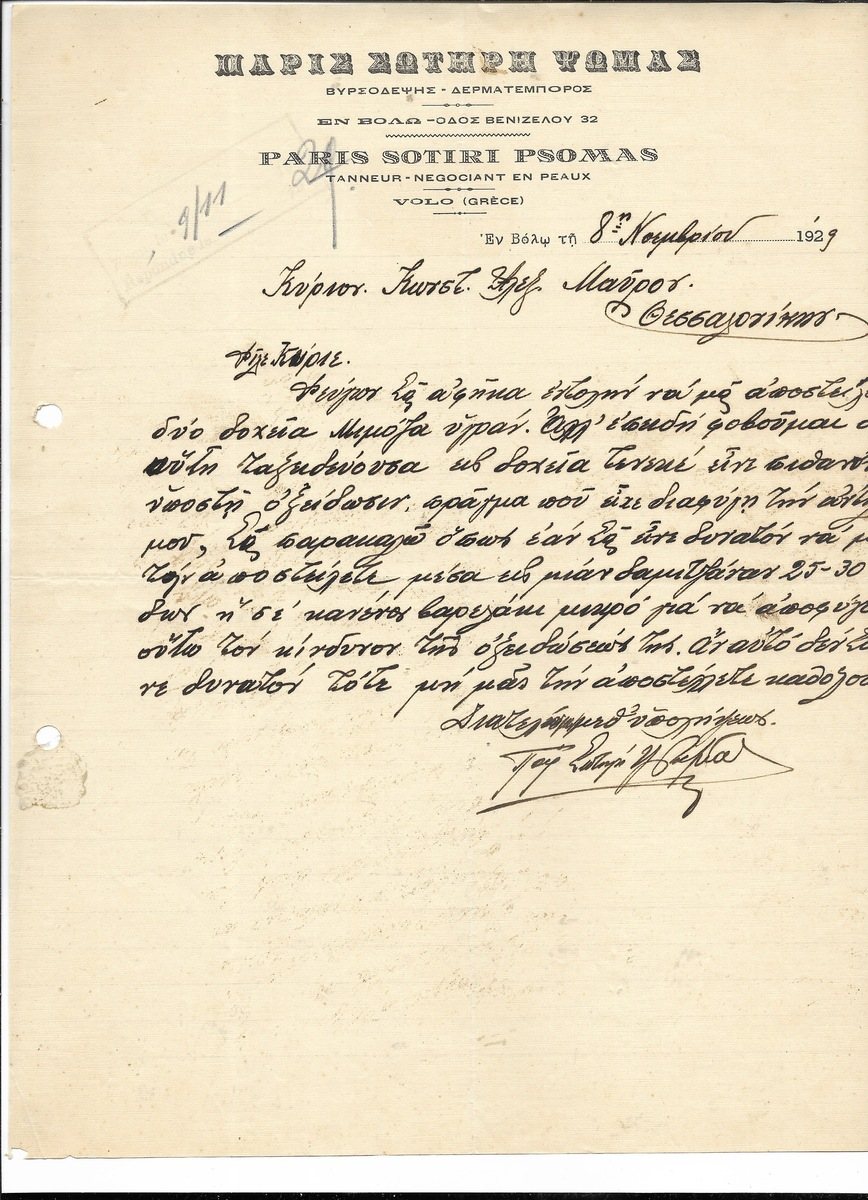 ΠΑΡΙΣ ΣΩΤΗΡΗ ΨΩΜΑΣ
ΒΥΡΣΟΔΕΨΗΣ - ΔΕΡΜΑΤΕΜΠΟΡΟΣ
ΕΝ ΒΟΛΩ - ΟΔΟΣ ΒΕΝΙΖΕΛΟΥ 32
PARIS SOTIRI PSOMAS
TANNEUR - NEGOCIANT EN PEAUX
VOLO (GRÈCE)
9/11
Ἐν Βόλῳ τῇ 8ῃ Νοεμβρίου 1929
Κύριον. Κωνστ. Ἀλεξ. Μαῦρον.
Θεσσαλονίκην
Φίλε Κύριε.
Φεύγων Σᾶς ἀφῆκα ἐντολὴν νὰ μᾶς ἀποστείλε
δύο δοχεῖα Μιμόζα ὑγράν. Ἀλλ' ἐπειδὴ φοβοῦμαι
αὕτη ταξειδεύουσα εἰς δοχεῖα τενεκέ εἶνε πιθανὸ
ὑποστῇ ὀξείδωσιν, πρᾶγμα ποῦ εἶχε διαφύγῃ τὴν ἀντίλ
μου, Σᾶς παρακαλῶ ὅπως ἐὰν Σᾶς εἶνε δυνατὸν νὰ μ
τὴν ἀποστείλετε μέσα εἰς μίαν δαμιτζάναν 25-30
δων ἢ σὲ κανένα βαρελάκι μικρὸ γιὰ νὰ ἀποφύγω
οὕτω τὸν κίνδυνον τῆς ὀξειδώσεώς της. Ἂν αὐτὸ δὲν Σᾶ
νε δυνατὸν τότε μὴ μᾶς τὴν ἀποστέλλετε καθόλου
Διατελῶ μεθ' ὑπολήψεως.
Παρ Σωτήρη Ψωμᾶς